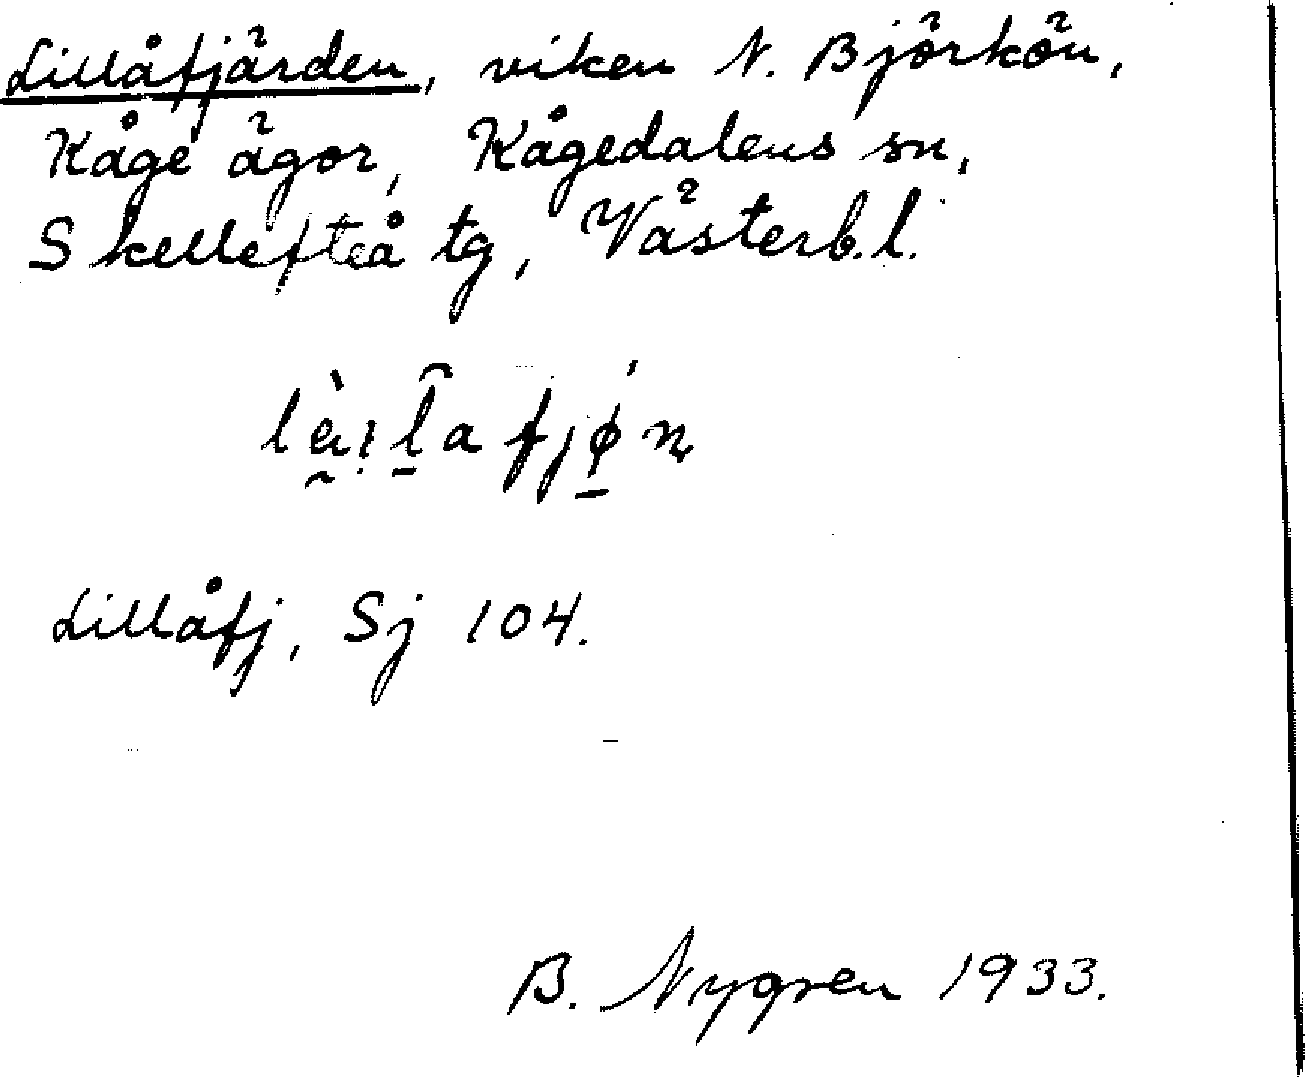 Lillåfjärden, viken N. Björkön,
Kåge ägor, Kågedalens sn,
Skellefteå tg, Västerb.l.
Lillåfj, Sj 104.
B. Nygren 1933.